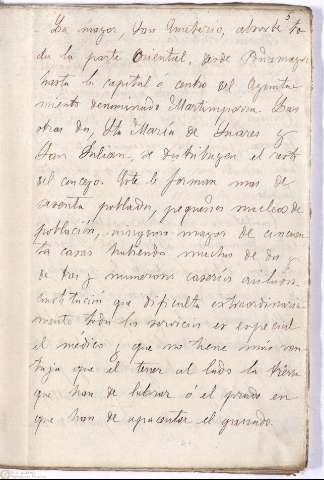 5
La mayor, San Emeterio, absorbe to
da la parte Oriental, desde Peñamayor
hasta la capital ó centro del Ayunta
miento denominado Martimporra. Las
otras dos, Sta María de Suares y
San Julian, se distribuyen el resto
del concejo. Este lo forman mas de
setenta poblados, pequeños nucleos de
población, ninguno mayor de cincuen
ta casas habiendo muchos de dos y
de tres y numerosos caseríos aislados
constitución que dificulta extraordinaria
mente todos los servicios es especial
el médico y que no tiene más ven
taja que el tener al lado la tierra
que han de laborar ó el prado en
que han de apacentar el ganado.